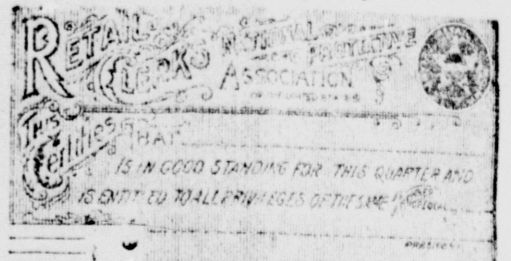 RETAIL CLERKS NATIONAL PROTECTIVE
ASSOCIATION
THIS Certifies THAT
IS IN GOOD STANDING FOR THIS QUARTER AND
IS ENTITLED TO ALL PRIVILEGES OF THE SAME